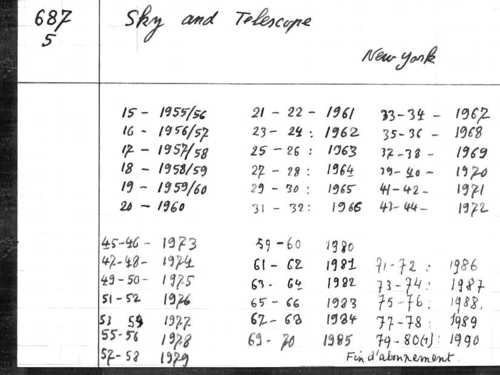 687
5
Sky and Telescope
New York
15 - 1955/56 21 - 22 - 1961 33-34 - 1967
16 - 1956/57 23 - 24 : 1962 35-36 - 1968
17 - 1957/58 25 - 26 : 1963 37-38 - 1969
18 - 1958/59 27 - 28 : 1964 39-40 - 1970
19 - 1959/60 29 - 30 : 1965 41-42 - 1971
20 - 1960 31 - 32 : 1966 43-44 - 1972
45-46 - 1973 59-60 1980
47-48 - 1974 61 - 62 1981 71-72 : 1986
49-50 - 1975 63 - 64 1982 73-74 : 1987
51-52 1976 65 - 66 1983 75-76 : 1988.
53 54 1977 67 - 68 1984 77-78 : 1989
55-56 1978 69 - 70 1985 79-80(1) : 1990
57-58 1979 Fin d'abonnement.